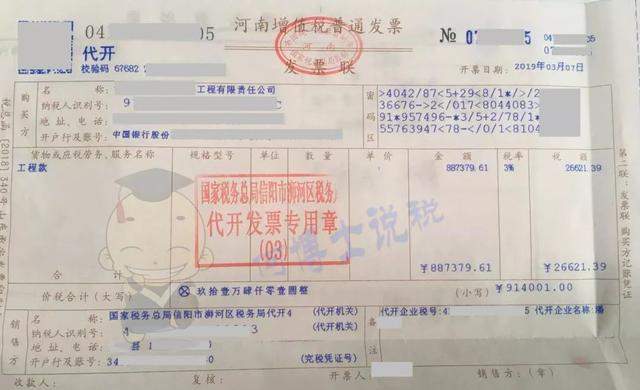 04 05
河南增值税普通发票
№ 07 5
代开
发票联
05
校验码 67682
开票日期: 2019年03月07日
购买方
名 称: 工程有限责任公司
纳税人识别号: 9
地址、电话:
开户行及账号: 中国银行股份
密码区
>4042/87<5+29<8/1*/>/2
36676->2</017<8044083>
91*957496-*3/5+2/78/1*
55763947<78-</0/1<8104
货物或应税劳务、服务名称 规格型号 单位 数量 单价 金额 税率 税额
工程款 887379.61 3% 26621.39
国家税务总局信阳市浉河区税务
代开发票专用章
(03)
博士说税
合计 ￥887379.61 ￥26621.39
价税合计(大写) ⊗ 玖拾壹万肆仟零壹圆整 (小写) ￥914001.00
销售方
名 称: 国家税务总局信阳市浉河区税务局代开4 (代开机关)
纳税人识别号: 4 3 (代开机关)
地址、电话: 县
开户行及账号: 34 (完税凭证号)
备注
代开企业税号: 4 5 代开企业名称: 潘
收款人: 复核: 开票人: 销售方: (章)
第二联: 发票联 购买方记账凭证